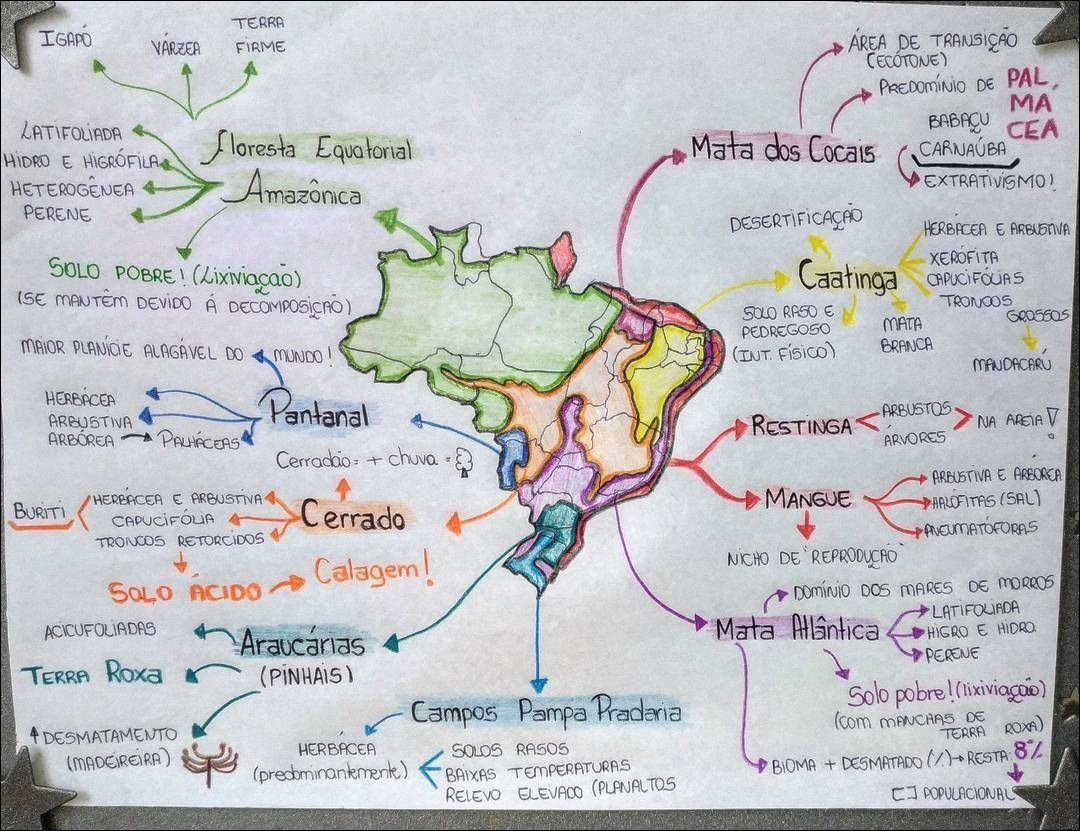 IGAPÓ
VÁRZEA
TERRA
FIRME
LATIFOLIADA
HIDRO E HIGRÓFILA
HETEROGÊNEA
PERENE
Floresta Equatorial
Amazônica
SOLO POBRE! (Lixiviação)
(SE MANTÊM DEVIDO Á DECOMPOSIÇÃO)
MAIOR PLANÍCIE ALAGÁVEL DO MUNDO!
HERBÁCEA
ARBUSTIVA
ARBÓREA → PALHÁCEAS
Pantanal
Cerradão = + chuva =
BURITI
HERBÁCEA E ARBUSTIVA
CAPUCIFÓLIA
TRONCOS RETORCIDOS
Cerrado
SOLO ÁCIDO → Calagem!
ACICUFOLIADAS
TERRA ROXA
Araucárias
(PINHAIS)
↑ DESMATAMENTO
(MADEIREIRA)
Campos Pampa Pradaria
HERBÁCEA
(predominantemente)
SOLOS RASOS
BAIXAS TEMPERATURAS
RELEVO ELEVADO (PLANALTOS
Mata dos Cocais
ÁREA DE TRANSIÇÃO
(ECÓTONE)
PREDOMÍNIO DE PAL
MA
CEA
BABAÇU
CARNAÚBA
EXTRATIVISMO!
Caatinga
DESERTIFICAÇÃO
HERBÁCEA E ARBUSTIVA
XERÓFITA
CAPUCIFÓLIAS
TRONCOS
GROSSOS
MANDACARÚ
SOLO RASO E
PEDREGOSO
(INT. FÍSICO)
MATA
BRANCA
RESTINGA
ARBUSTOS
ÁRVORES
NA AREIA!
MANGUE
ARBUSTIVA E ARBÓREA
HALÓFITAS (SAL)
PNEUMATÓFORAS
NICHO DE "REPRODUÇÃO"
Mata Atlântica
DOMÍNIO DOS MARES DE MORROS
LATIFOLIADA
HIGRO E HIDRO.
PERENE
Solo pobre! (lixiviação)
(COM MANCHAS DE
TERRA ROXA)
BIOMA + DESMATADO (%) → RESTA 8%
[ ] POPULACIONAL